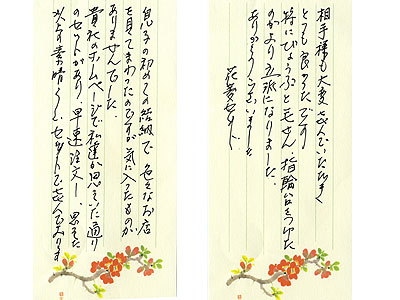 息子の初めての結納で、色々なお店
を見てまわったのですが気に入ったものが
ありませんでした。
貴社のホームページで私達が思っていた通り
のセットがあり、早速注文し、思った
以上の素晴らしいセットで喜んでおります
相手様も大変喜んでいただき
とても良かったです
特にびょうぶと毛せん、指輪台をつけた
のがより立派になりました。
ありがとうございました
花菱セット